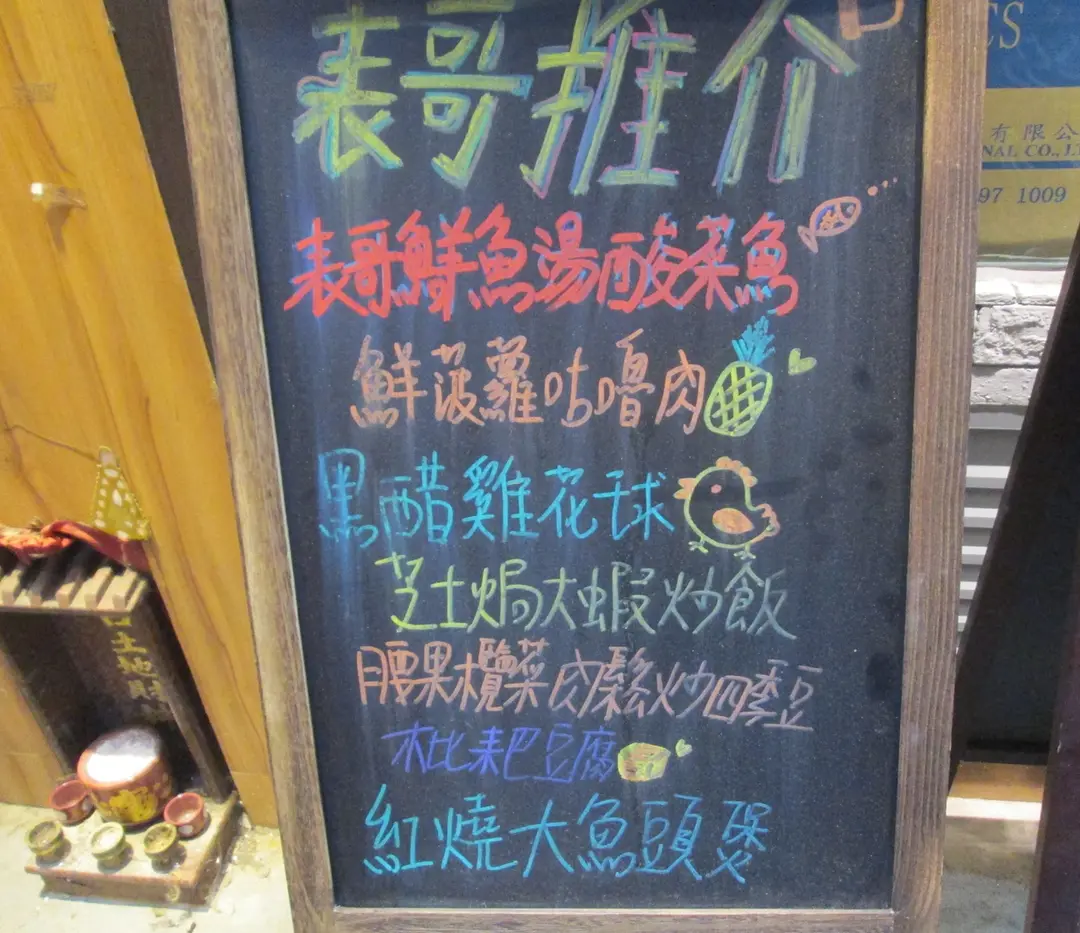 表哥推介
表哥鮮魚湯酸菜魚
鮮菠蘿咕嚕肉
黑醋雞花球
芝士焗大蝦炒飯
腰果欖菜肉鬆炒四季豆
枇杷豆腐
紅燒大魚頭煲
CS
有限公
NAL CO., LT
97 1009
土地財